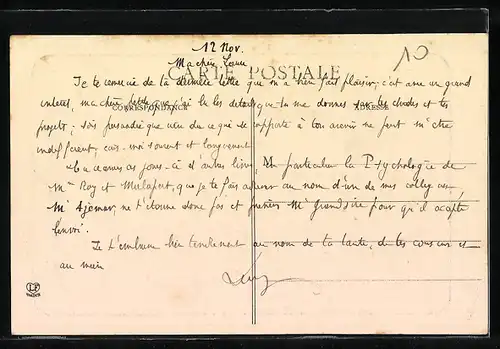 12 Nov.
10
Ma chère
CARTE POSTALE
Je te remercie de ta dernière lettre qui m'a bien fait plaisir; c'est avec un grand
intérêt, ma chère petite, que j'ai lu les détails que tu me donnes sur tes études et tes
CORRESPONDANCE
ADRESSE
projets; sois persuadée que rien de ce qui se rapporte à ton avenir ne peut m'être
indifférent; écris-moi souvent et longuement.
Tu recevras ces jours-ci d'autres livres, en particulier la Psychologie de
Mrs Rey et Malapert, que je te fais adresser au nom d'un de mes collègues
Mr ne t'étonne donc pas et préviens Mr pour qu'il accepte
l'envoi.
Je t'embrasse bien tendrement au nom de ta tante, de tes cousins et
au mien
LF